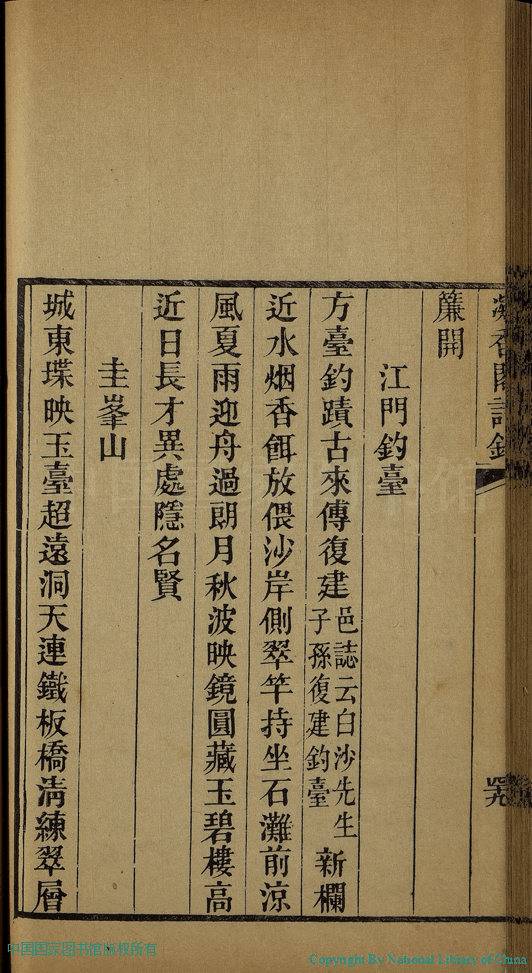 凝香閣詩鈔
簾開
江門釣臺
方臺釣蹟古來傳復建邑誌云白沙先生子孫復建釣臺新欄
近水烟香餌放偎沙岸側翠竿持坐石灘前涼
風夏雨迎舟過朗月秋波映鏡圓藏玉碧樓高
近日長才異處隱名賢
圭峯山
城東堞映玉臺超遠洞天連鐵板橋淸練翠層
中国国家图书馆版权所有
Copyright By National Library of China